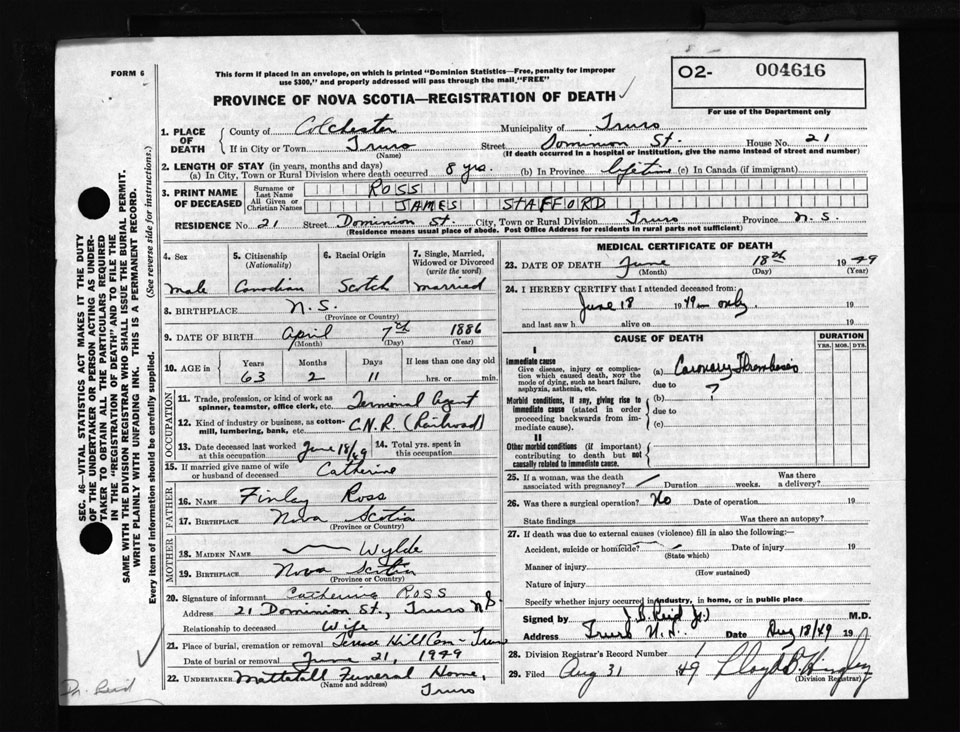 FORM 6
This form if placed in an envelope, on which is printed "Dominion Statistics—Free, penalty for improper
use $300," and properly addressed will pass through the mail "FREE"
O2- 004616
For use of the Department only
PROVINCE OF NOVA SCOTIA—REGISTRATION OF DEATH
1. PLACE OF DEATH
County of Colchester Municipality of Truro
If in City or Town Truro Street Dominion St. House No. 21
(Name) (If death occurred in a hospital or institution, give the name instead of street and number)
2. LENGTH OF STAY (in years, months and days)
(a) In City, Town or Rural Division where death occurred 8 yrs. (b) In Province lifetime (c) In Canada (if immigrant)
3. PRINT NAME OF DECEASED
Surname or Last Name ROSS
All Given or Christian Names JAMES STAFFORD
RESIDENCE No. 21 Street Dominion St. City, Town or Rural Division Truro Province N.S.
(Residence means usual place of abode. Post Office Address for residents in rural parts not sufficient)
4. Sex
male
5. Citizenship (Nationality)
Canadian
6. Racial Origin
Scotch
7. Single, Married, Widowed or Divorced (write the word)
married
8. BIRTHPLACE N.S.
(Province or Country)
9. DATE OF BIRTH April 7th 1886
(Month) (Day) (Year)
10. AGE in Years Months Days If less than one day old
63 2 11 hrs. or min.
OCCUPATION
11. Trade, profession, or kind of work as
spinner, teamster, office clerk, etc. Terminal Agent
12. Kind of industry or business, as cotton-
mill, lumbering, bank, etc. C.N.R. (Railroad)
13. Date deceased last worked at this occupation June 18/49
14. Total yrs. spent in this occupation
15. If married give name of wife
or husband of deceased Catherine
FATHER
16. NAME Finlay Ross
17. BIRTHPLACE Nova Scotia
(Province or Country)
MOTHER
18. MAIDEN NAME Wylde
19. BIRTHPLACE Nova Scotia
(Province or Country)
20. Signature of informant Catherine Ross
Address 21 Dominion St., Truro N.S.
Relationship to deceased Wife
21. Place of burial, cremation or removal Hill Cem - Truro
Date of burial or removal June 21, 1949
22. UNDERTAKER Mattatall Funeral Home,
(Name and address) Truro
MEDICAL CERTIFICATE OF DEATH
23. DATE OF DEATH June 18th 1949
(Month) (Day) (Year)
24. I HEREBY CERTIFY that I attended deceased from:
June 18 1949 only 19
and last saw h alive on 19
CAUSE OF DEATH
DURATION
YRS. MOS. DYS.
I
Immediate cause
Give disease, injury or complica-
tion which caused death, NOT the
mode of dying, such as heart failure,
asphyxia, asthenia, etc.
(a) Coronary Thrombosis
due to
Morbid conditions, if any, giving rise to
immediate cause (stated in order
proceeding backwards from im-
mediate cause).
(b) ?
due to
(c)
II
Other morbid conditions (if important)
contributing to death but not
causally related to immediate cause.
25. If a woman, was the death
associated with pregnancy? Duration weeks. Was there a delivery?
26. Was there a surgical operation? No Date of operation 19
State findings Was there an autopsy?
27. If death was due to external causes (violence) fill in also the following:—
Accident, suicide or homicide? Date of injury 19
(State which)
Manner of injury
(How sustained)
Nature of injury
Specify whether injury occurred in industry, in home, or in public place
Signed by J. S. Reid Jr. M.D.
Address Truro N.S. Date Aug 18/49 19
28. Division Registrar's Record Number
29. Filed Aug 31 49 Lloyd
(Division Registrar)
Dr. Reid
SEC. 46—VITAL STATISTICS ACT MAKES IT THE DUTY
OF THE UNDERTAKER OR PERSON ACTING AS UNDER-
TAKER TO OBTAIN ALL THE PARTICULARS REQUIRED
IN THE "REGISTRATION OF DEATH" AND TO FILE THE
SAME WITH THE DIVISION REGISTRAR WHO SHALL ISSUE THE BURIAL PERMIT.
WRITE PLAINLY WITH UNFADING INK. THIS IS A PERMANENT RECORD.
Every item of information should be carefully supplied. (See reverse side for instructions.)